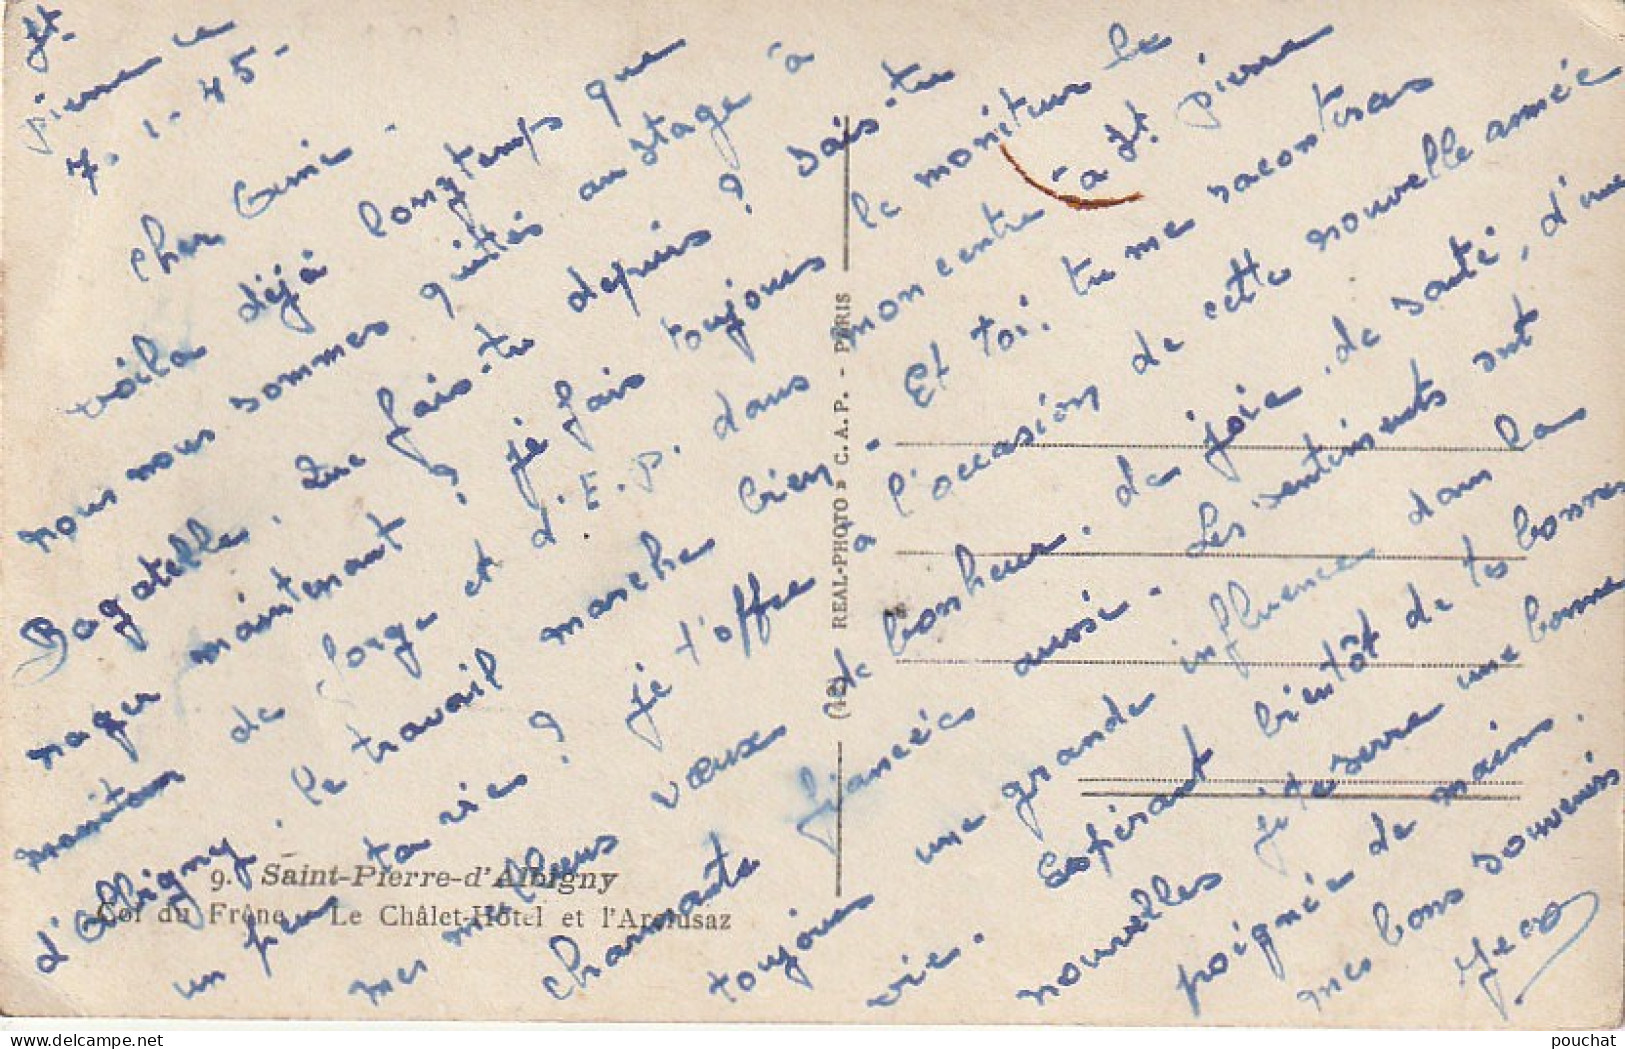 St
pierre le
7-1-45-
cher
voila déjà longtemps que
nous nous sommes quittés au stage à
Bagatelle. Que fais-tu depuis? Sais-tu
nager maintenant? je fais toujours le moniteur le
moniteur de forge et d'E.P. dans mon centre à St pierre
d'Albigny. le travail marche bien. Et toi? tu me raconteras
un peu ta vie? je t'offre à l'occasion de cette nouvelle année
mes meilleurs vœux de bonheur, de joie, de santé, d'une
charmante fiancée aussi. Les sentiments ont
toujours une grande influence dans la
vie. Espérant bientôt de tes bonnes
nouvelles je te serre une bonne
poignée de mains.
mes bons souvenirs
9. Saint-Pierre-d'Albigny
Col du Frêne - Le Châlet-Hôtel et l'Arclusaz
(12) REAL-PHOTO » C. A. P. - PARIS
pouchat